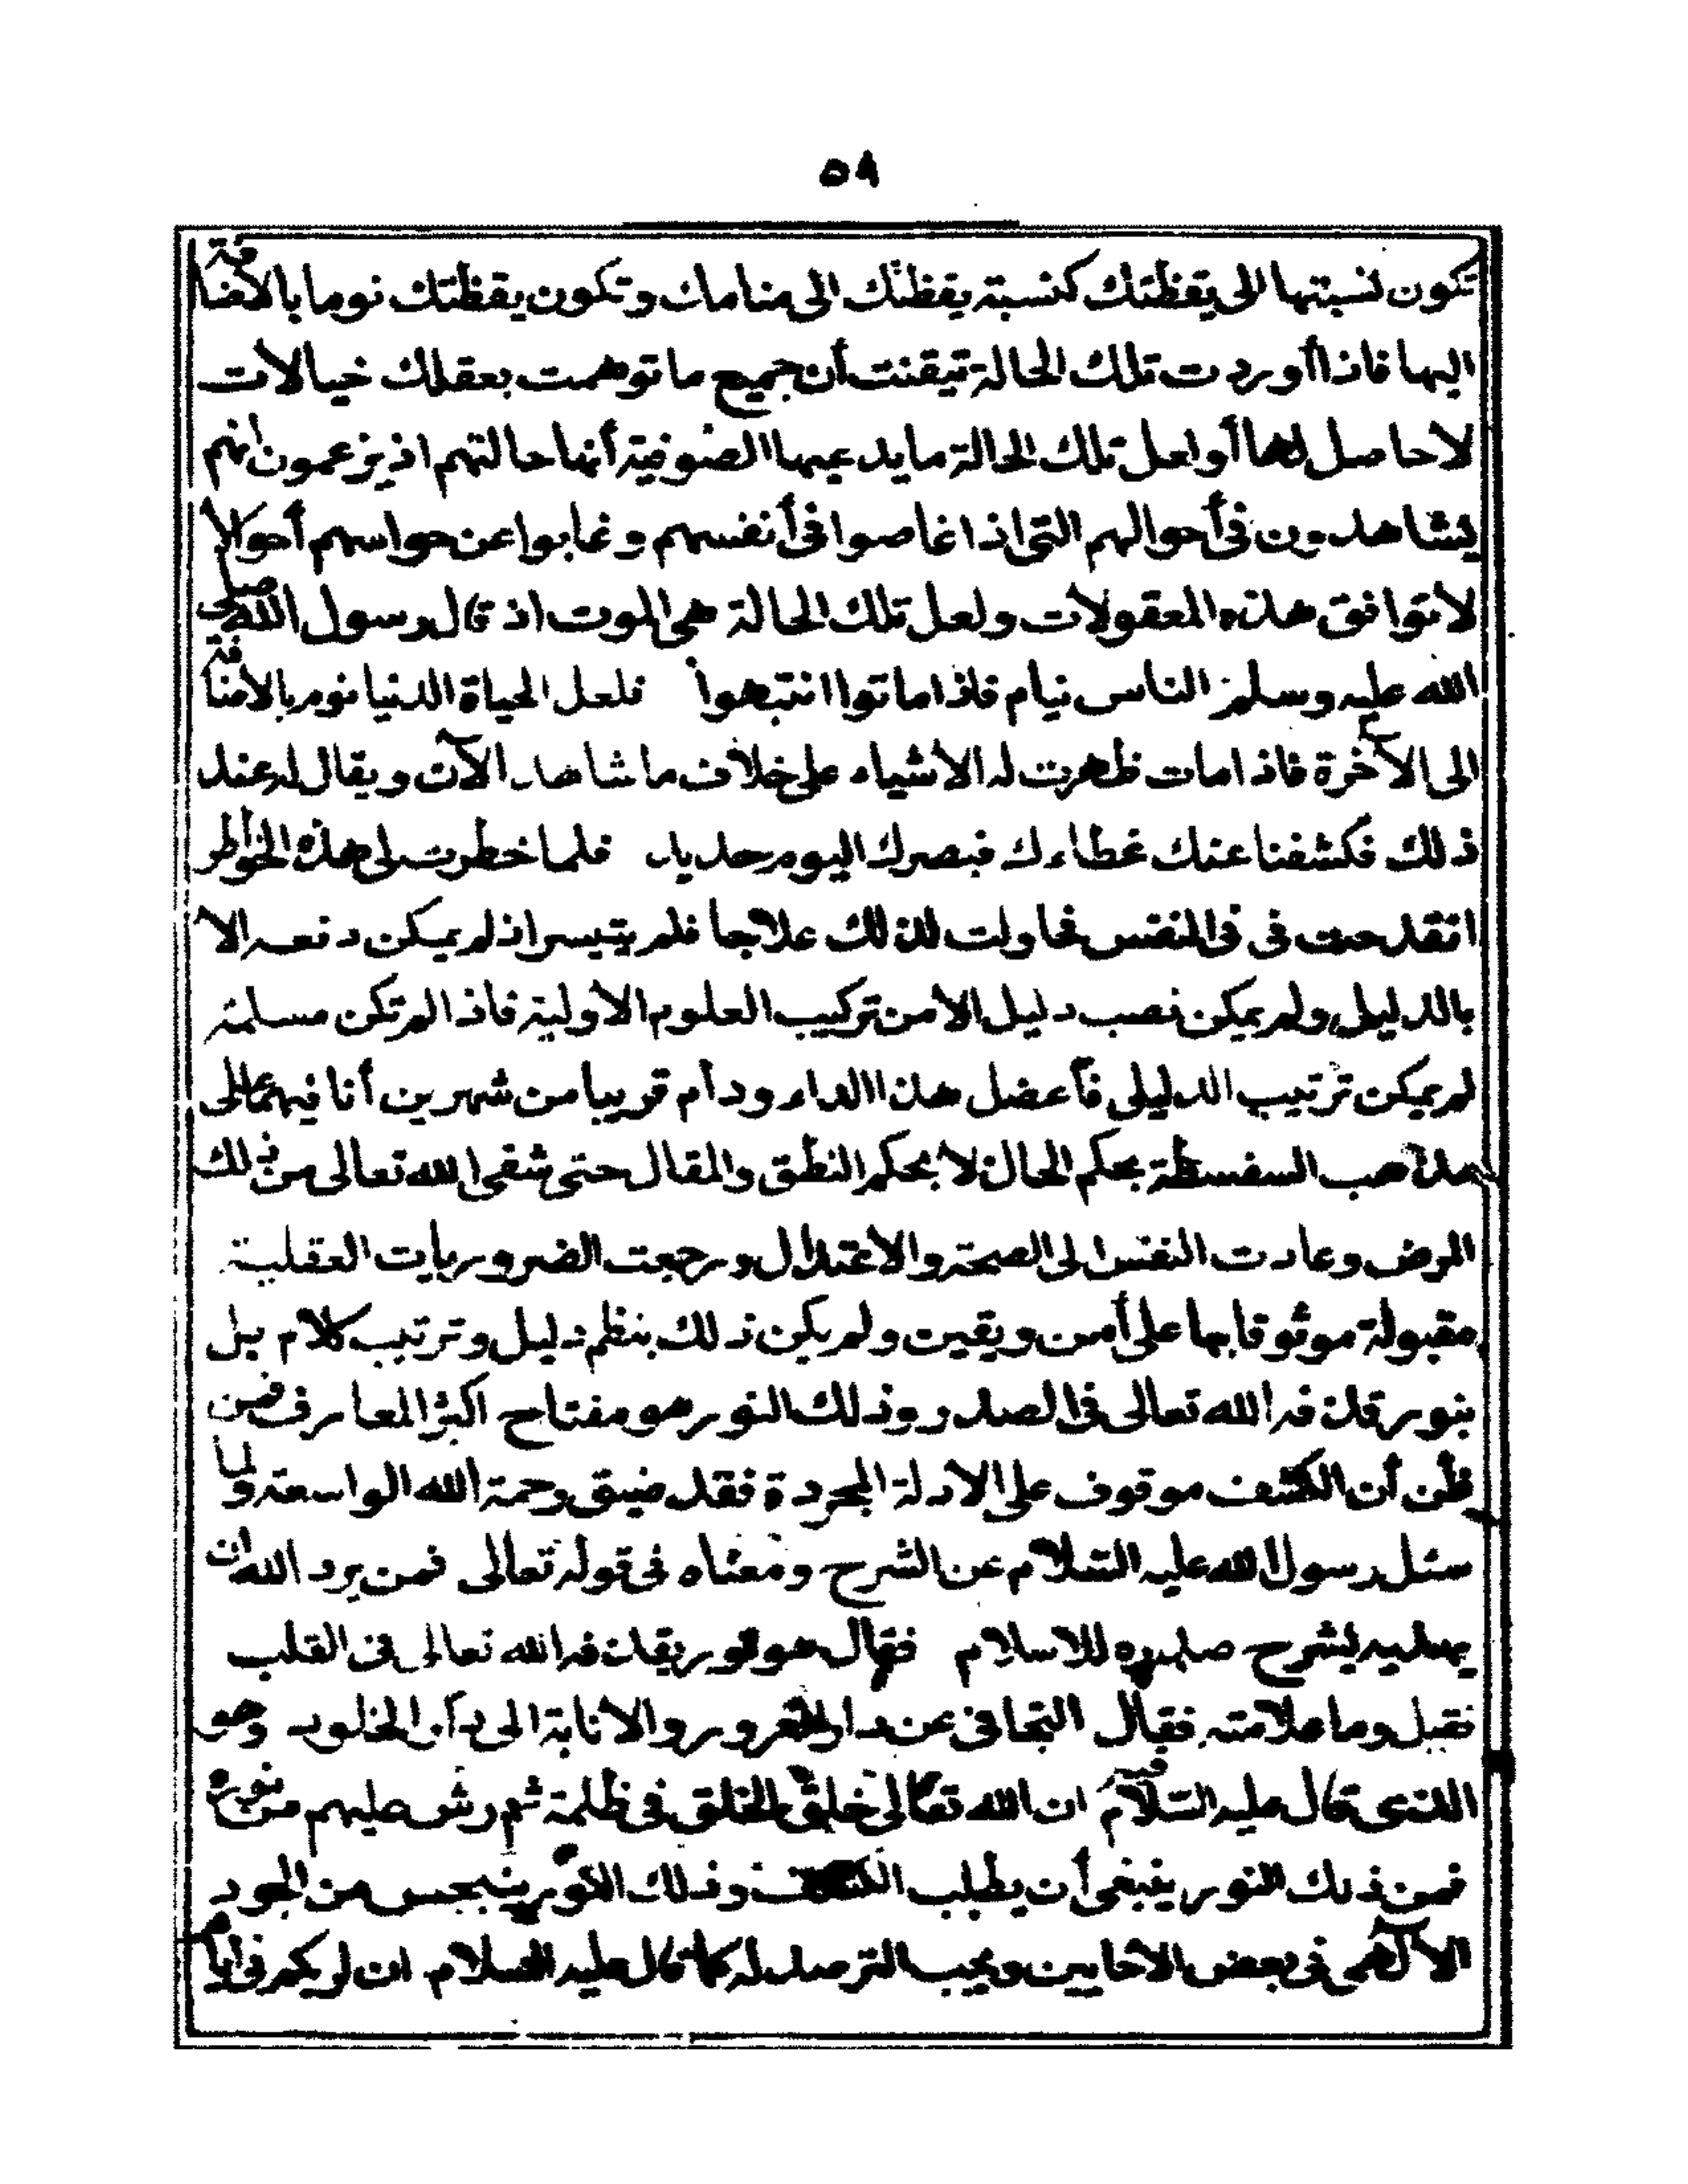 ٥٨
تكون نسبتها الى يقظتك كنسبة يقظتك الى منامك وتكون يقظتك نوما بالاضافة
اليها فاذا أوردت تلك الحالة تيقنت أن جميع ما توهمت بعقلك خيالات
لا حاصل لها أو لعل تلك الحالة ما يدعيها الصوفية أنها حالتهم اذ يزعمون انهم
يشاهدون في أحوالهم التي اذا غاصوا في أنفسهم وغابوا عن حواسهم أحوالا
لا توافق هذه المعقولات ولعل تلك الحالة هى الموت اذ قال رسول الله صلى
الله عليه وسلم الناس نيام فاذا ماتوا انتبهوا فلعل الحياة الدنيا نوم بالاضافة
الى الآخرة فاذا مات ظهرت له الأشياء على خلاف ما شاهد الآن ويقال له عند
ذلك فكشفنا عنك غطاءك فبصرك اليوم حديد فلما خطرت لى هذه الخواطر
انقدحت فى فى النفس فحاولت لذلك علاجا فلم يتيسر اذ لم يمكن دفعه الا
بالدليل ولم يمكن نصب دليل الا من تركيب العلوم الأولية فاذا لم تكن مسلمة
لم يمكن ترتيب الدليل فأعضل هذا الداء ودام قريبا من شهرين أنا فيهما على
مذاهب السفسطة بحكم الحال لا بحكم النطق والمقال حتى شفى الله تعالى من ذلك
المرض وعادت النفس الى الصحة والاعتدال ورجعت الضروريات العقلية
مقبولة موثوقا بها على أمن ويقين ولم يكن ذلك بنظم دليل وترتيب كلام بل
بنور قذفه الله تعالى فى الصدر وذلك النور هو مفتاح اكبر المعارف فمن
ظن أن الكشف موقوف على الادلة المجردة فقد ضيق رحمة الله الواسعة ولما
سئل رسول الله عليه السلام عن الشرح ومعناه فى قوله تعالى فمن يرد الله ان
يهديه يشرح صدره للاسلام فقال هو نور يقذفه الله تعالى فى القلب
فقيل وما علامته فقال التجافى عن دار الغرور والانابة الى دار الخلود وهو
الذى قال عليه السلام فيه ان الله تعالى خلق الخلق فى ظلمة ثم رش عليهم من نوره
فمن ذلك النور ينبغى أن يطلب الكشف وذلك النور ينبجس من الجود
الآلهى فى بعض الأحايين ويجب الترصد له كما قال عليه السلام ان لربكم فى أيام